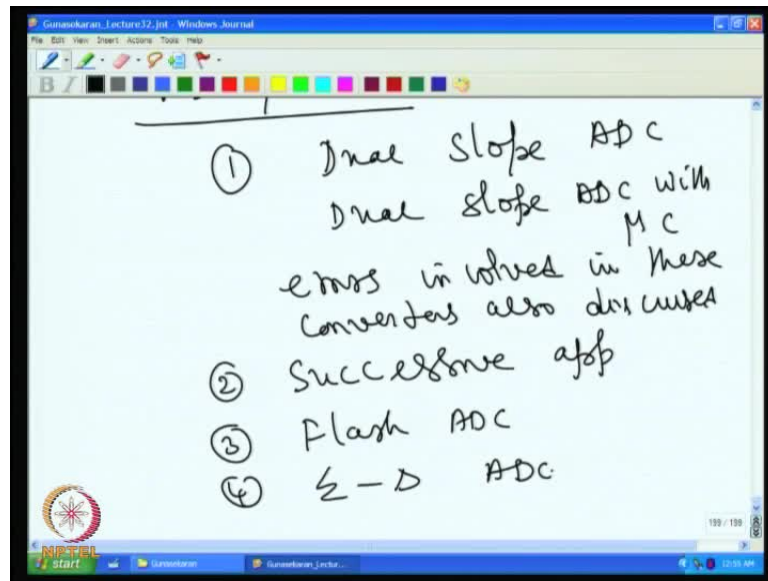 Gunasekaran_Lecture32.jnt - Windows Journal
File Edit View Insert Actions Tools Help
B I
① Dual Slope ADC
Dual slope ADC with
μC
errors involved in these
converters also discuses
② Successive app
③ Flash ADC
④ Σ-D ADC
199 / 199
NPTEL
start Gunasekaran Gunasekaran_Lectur... 12:55 AM